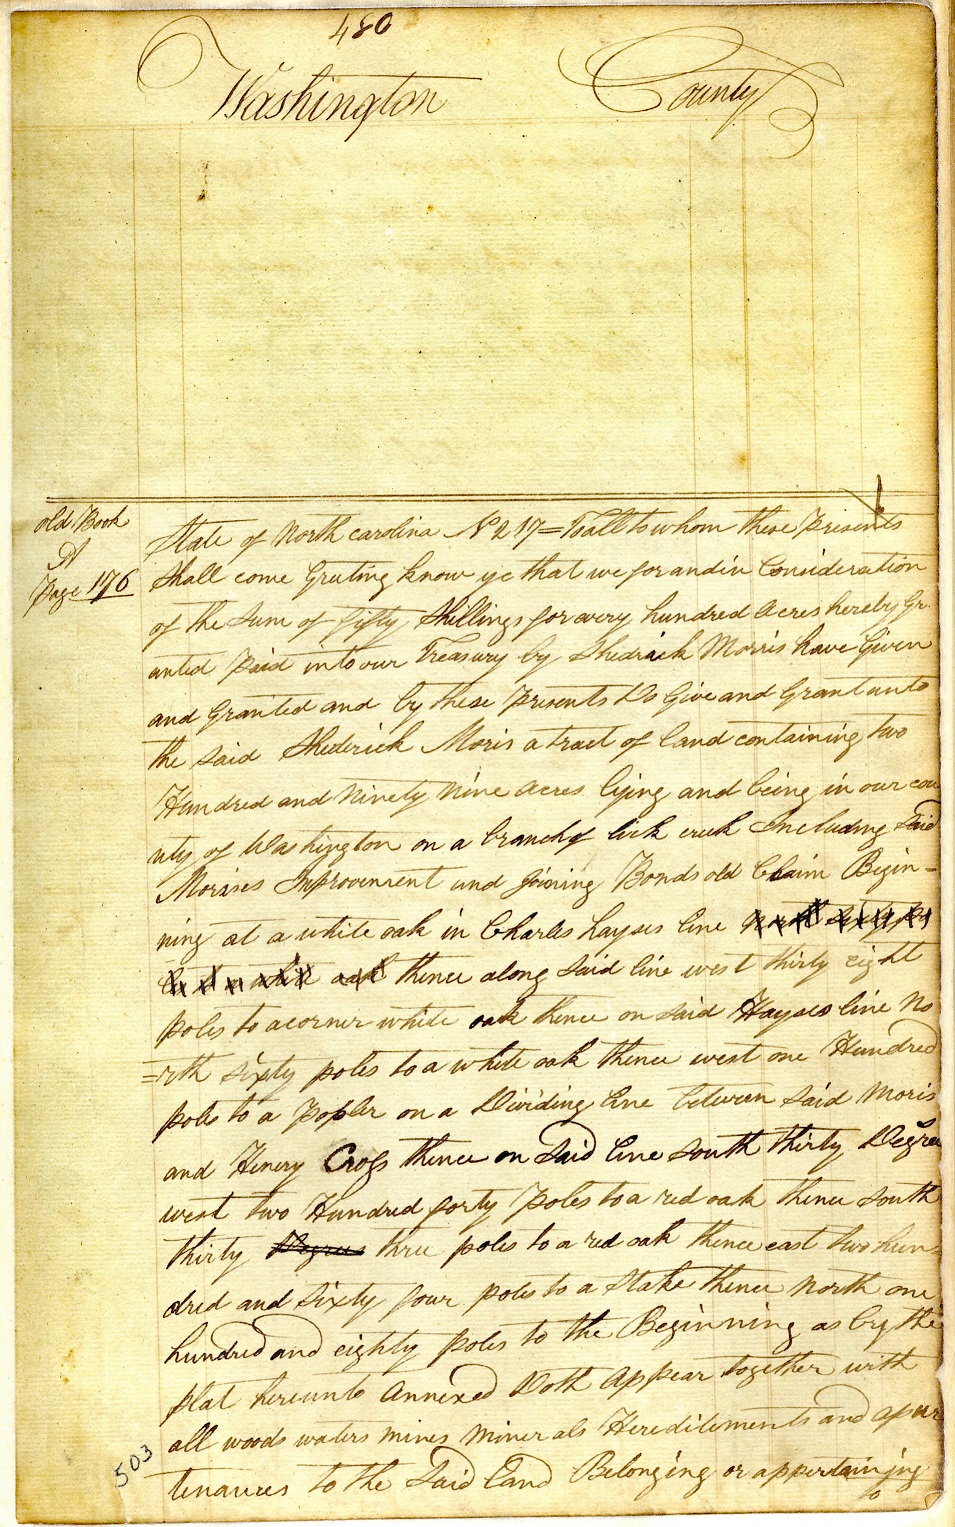 480
Washington County
old Book
A
Page 176
State of North carolina No 217 = To all to whom these Presents
Shall come Greeting know ye that we for and in Consideration
of the Sum of fifty Shillings for every hundred Acres hereby Gr
anted Paid into our Treasury by Shedrick Morris have Given
and Granted and by these Presents Do Give and Grant unto
the said Shederick Moris a tract of land containing two
Hundred and Ninety Nine acres lying and being in our cou
nty of Washington on a branch of lick creek Including Said
Morises Improvement and Joining Bonds old Claim Begin-
ning at a white oak in Charles hayses line
thence along said line west thirty eight
poles to a corner white oak thence on said Hayses line No
=rth sixty poles to a white oak thence west one Hundred
poles to a Popler on a Dividing line between said Moris
and Henery Cross thence on Said line South thirty Degrees
west two Hundred forty Poles to a red oak thence South
thirty Degrees three poles to a red oak thence east two hun=
dred and sixty four poles to a Stake thence North one
hundred and eighty poles to the Beginning as by the
plat hereunto Annexed Doth Appear together with
all woods waters mines minerals Hereditements and apur
tenances to the Said Land Belonging or appertaining
to
503